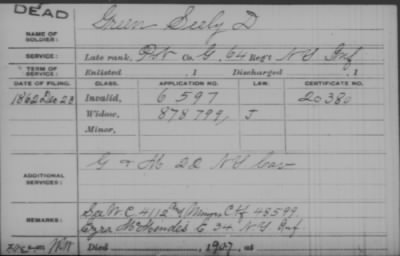 DEAD
NAME OF SOLDIER: Green Seely D
SERVICE: Late rank, Pvt Co. G, 64 Reg't N Y Inf
TERM OF SERVICE: Enlisted , 1 Discharged , 1
DATE OF FILING. CLASS. APPLICATION NO. LAW. CERTIFICATE NO.
1862 Dec 23 Invalid, 6 597 20380
Widow, 878 799, J
Minor,
ADDITIONAL SERVICES: G & M 22 N Y Cav
REMARKS: See W C. 4112 Minors C 48599
Ezra E 34 N Y Inf
Died , 1907, at